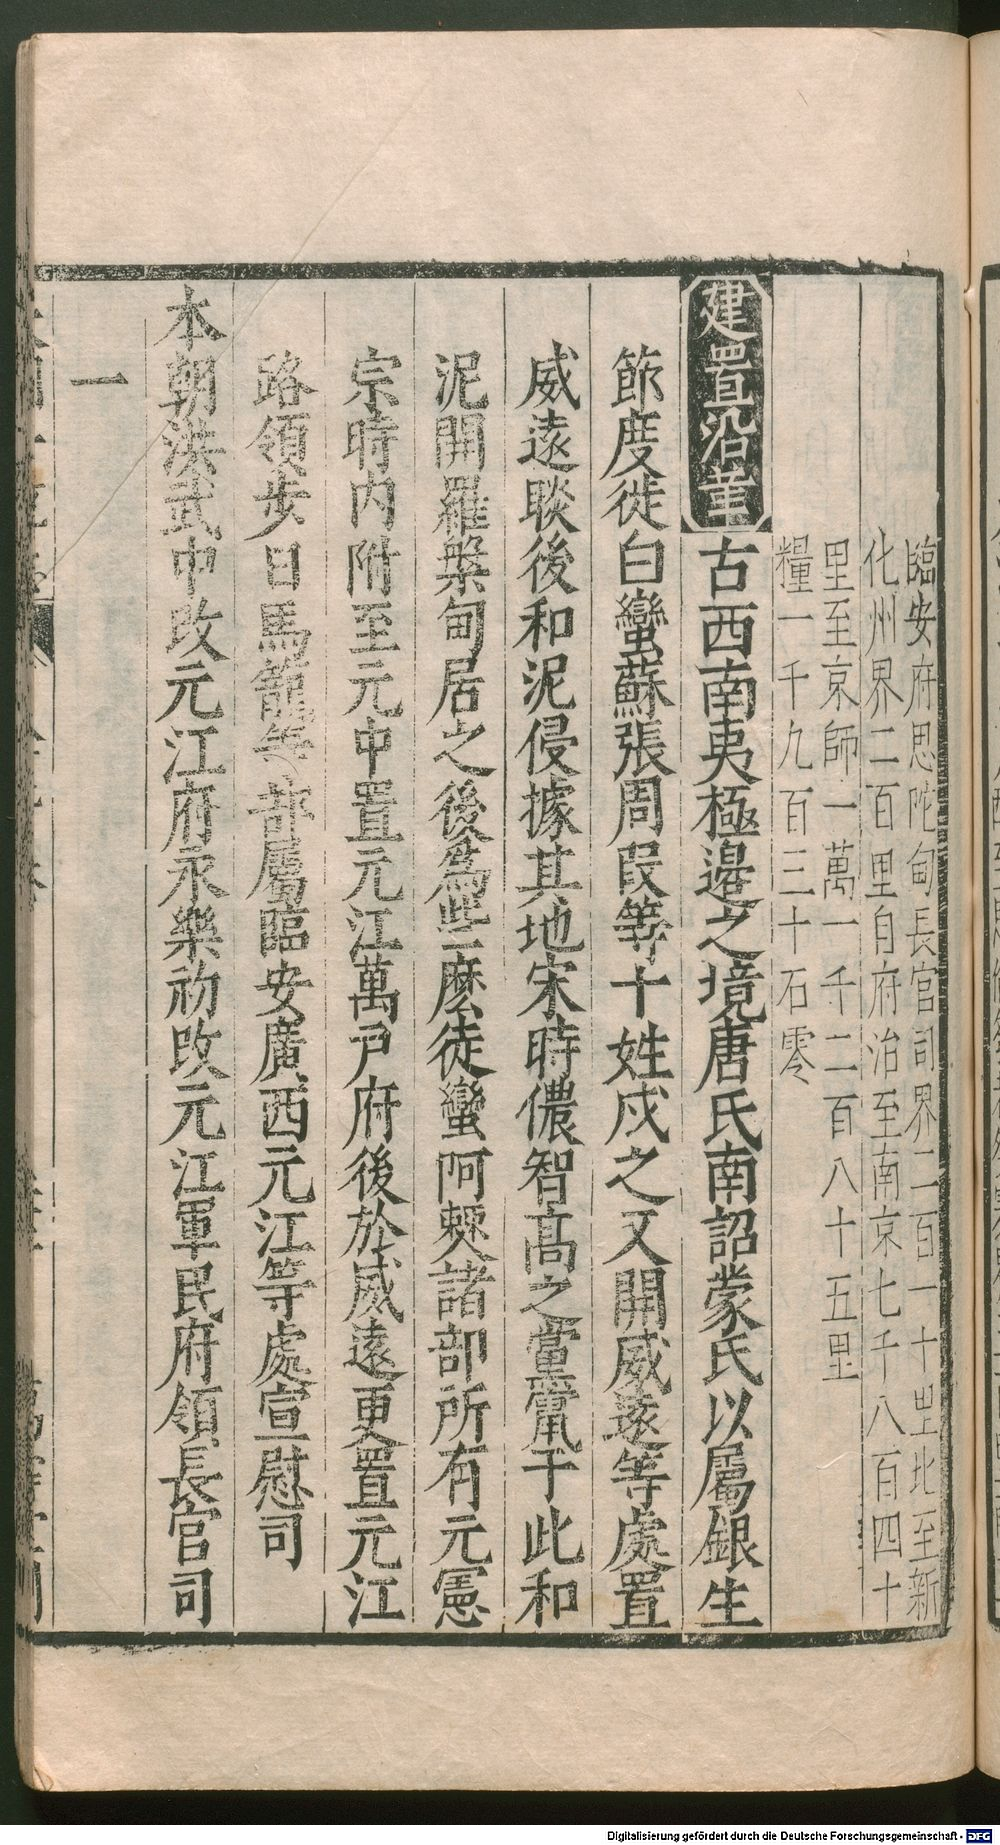 臨安府思陀甸長官司界二百一十里北至新
化州界二百里自府治至南京七千八百四十
里至京師一萬一千二百八十五里
糧一千九百三十石零
建置沿革 古西南夷極邊之境唐氏南詔蒙氏以屬銀生
節度徙白蠻蘇張周叚等十姓戍之又開威遠等處置
威遠睒後和泥侵據其地宋時儂智高之黨竄于此和
泥開羅槃甸居之後為些麽徒蠻阿僰諸部所有元憲
宗時内附至元中置元江萬户府後於威遠更置元江
路領步日馬籠等部屬臨安廣西元江等處宣慰司
本朝洪武中改元江府永樂初改元江軍民府領長官司
一
Digitalisierung gefördert durch die Deutsche Forschungsgemeinschaft - DFG